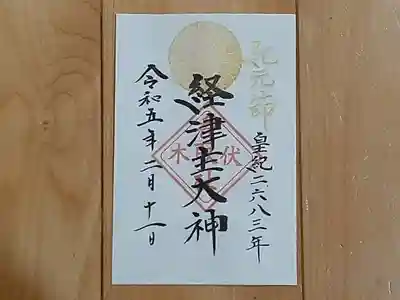 紀元節
皇紀二六八三年
経津主大神
伏木
令和五年二月十一日